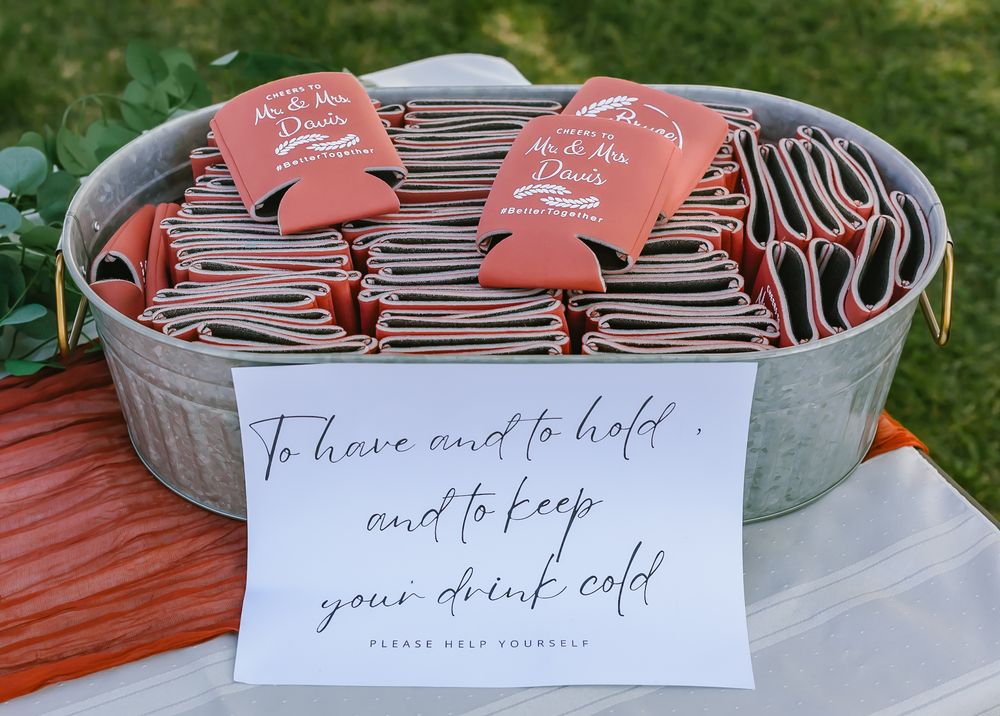 CHEERS TO
Mr. & Mrs.
Davis
#BetterTogether
Bruce
CHEERS TO
Mr. & Mrs.
Davis
#BetterTogether
To have and to hold,
and to keep
your drink cold
PLEASE HELP YOURSELF